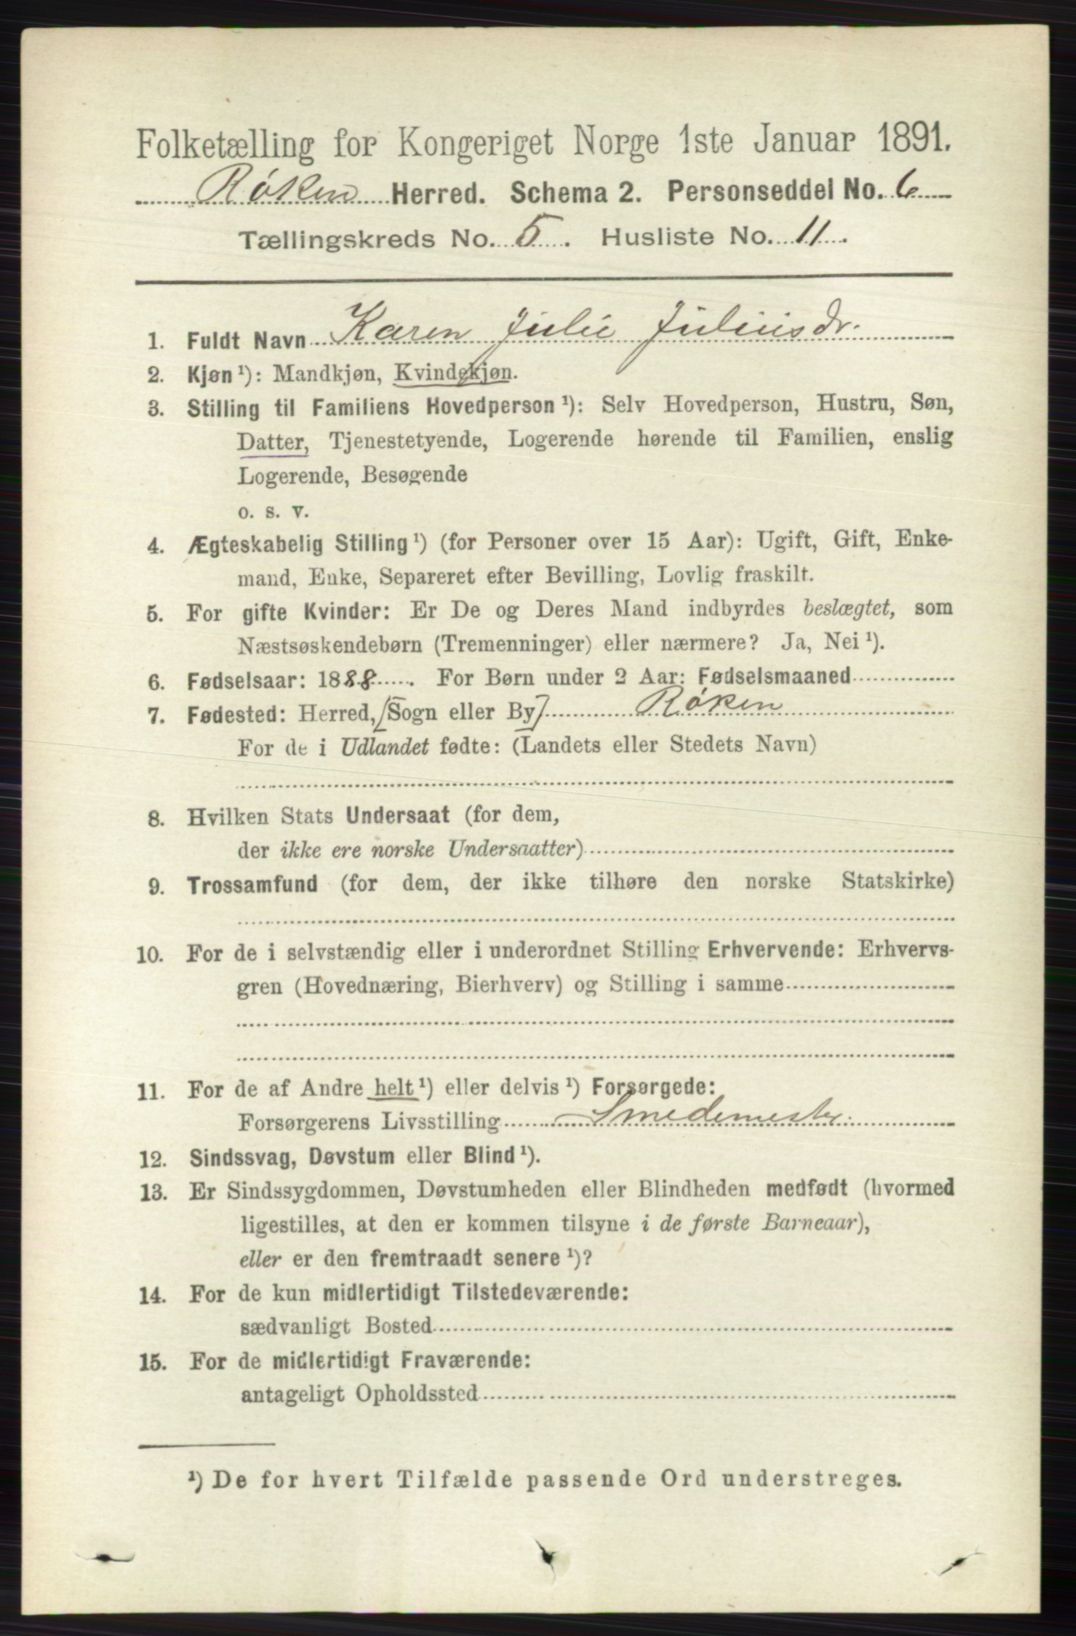 Folketælling for Kongeriget Norge 1ste Januar 1891.
Røken Herred. Schema 2. Personseddel No. 6
Tællingskreds No. 5. Husliste No. 11.
1. Fuldt Navn Karen Julie Juliusdr.
2. Kjøn ¹): Mandkjøn, Kvindekjøn.
3. Stilling til Familiens Hovedperson ¹): Selv Hovedperson, Hustru, Søn,
Datter, Tjenestetyende, Logerende hørende til Familien, enslig
Logerende, Besøgende
o. s. v.
4. Ægteskabelig Stilling ¹) (for Personer over 15 Aar): Ugift, Gift, Enke-
mand, Enke, Separeret efter Bevilling, Lovlig fraskilt.
5. For gifte Kvinder: Er De og Deres Mand indbyrdes beslægtet, som
Næstsøskendebørn (Tremenninger) eller nærmere? Ja, Nei ¹).
6. Fødselsaar: 1888. For Børn under 2 Aar: Fødselsmaaned
7. Fødested: Herred, [Sogn eller By] Røken
For de i Udlandet fødte: (Landets eller Stedets Navn)
8. Hvilken Stats Undersaat (for dem,
der ikke ere norske Undersaatter)
9. Trossamfund (for dem, der ikke tilhøre den norske Statskirke)
10. For de i selvstændig eller i underordnet Stilling Erhvervende: Erhvervs-
gren (Hovednæring, Bierhverv) og Stilling i samme
11. For de af Andre helt ¹) eller delvis ¹) Forsørgede:
Forsørgerens Livsstilling Smedemester.
12. Sindssvag, Døvstum eller Blind ¹).
13. Er Sindssygdommen, Døvstumheden eller Blindheden medfødt (hvormed
ligestilles, at den er kommen tilsyne i de første Barneaar),
eller er den fremtraadt senere ¹)?
14. For de kun midlertidigt Tilstedeværende:
sædvanligt Bosted
15. For de midlertidigt Fraværende:
antageligt Opholdssted
¹) De for hvert Tilfælde passende Ord understreges.